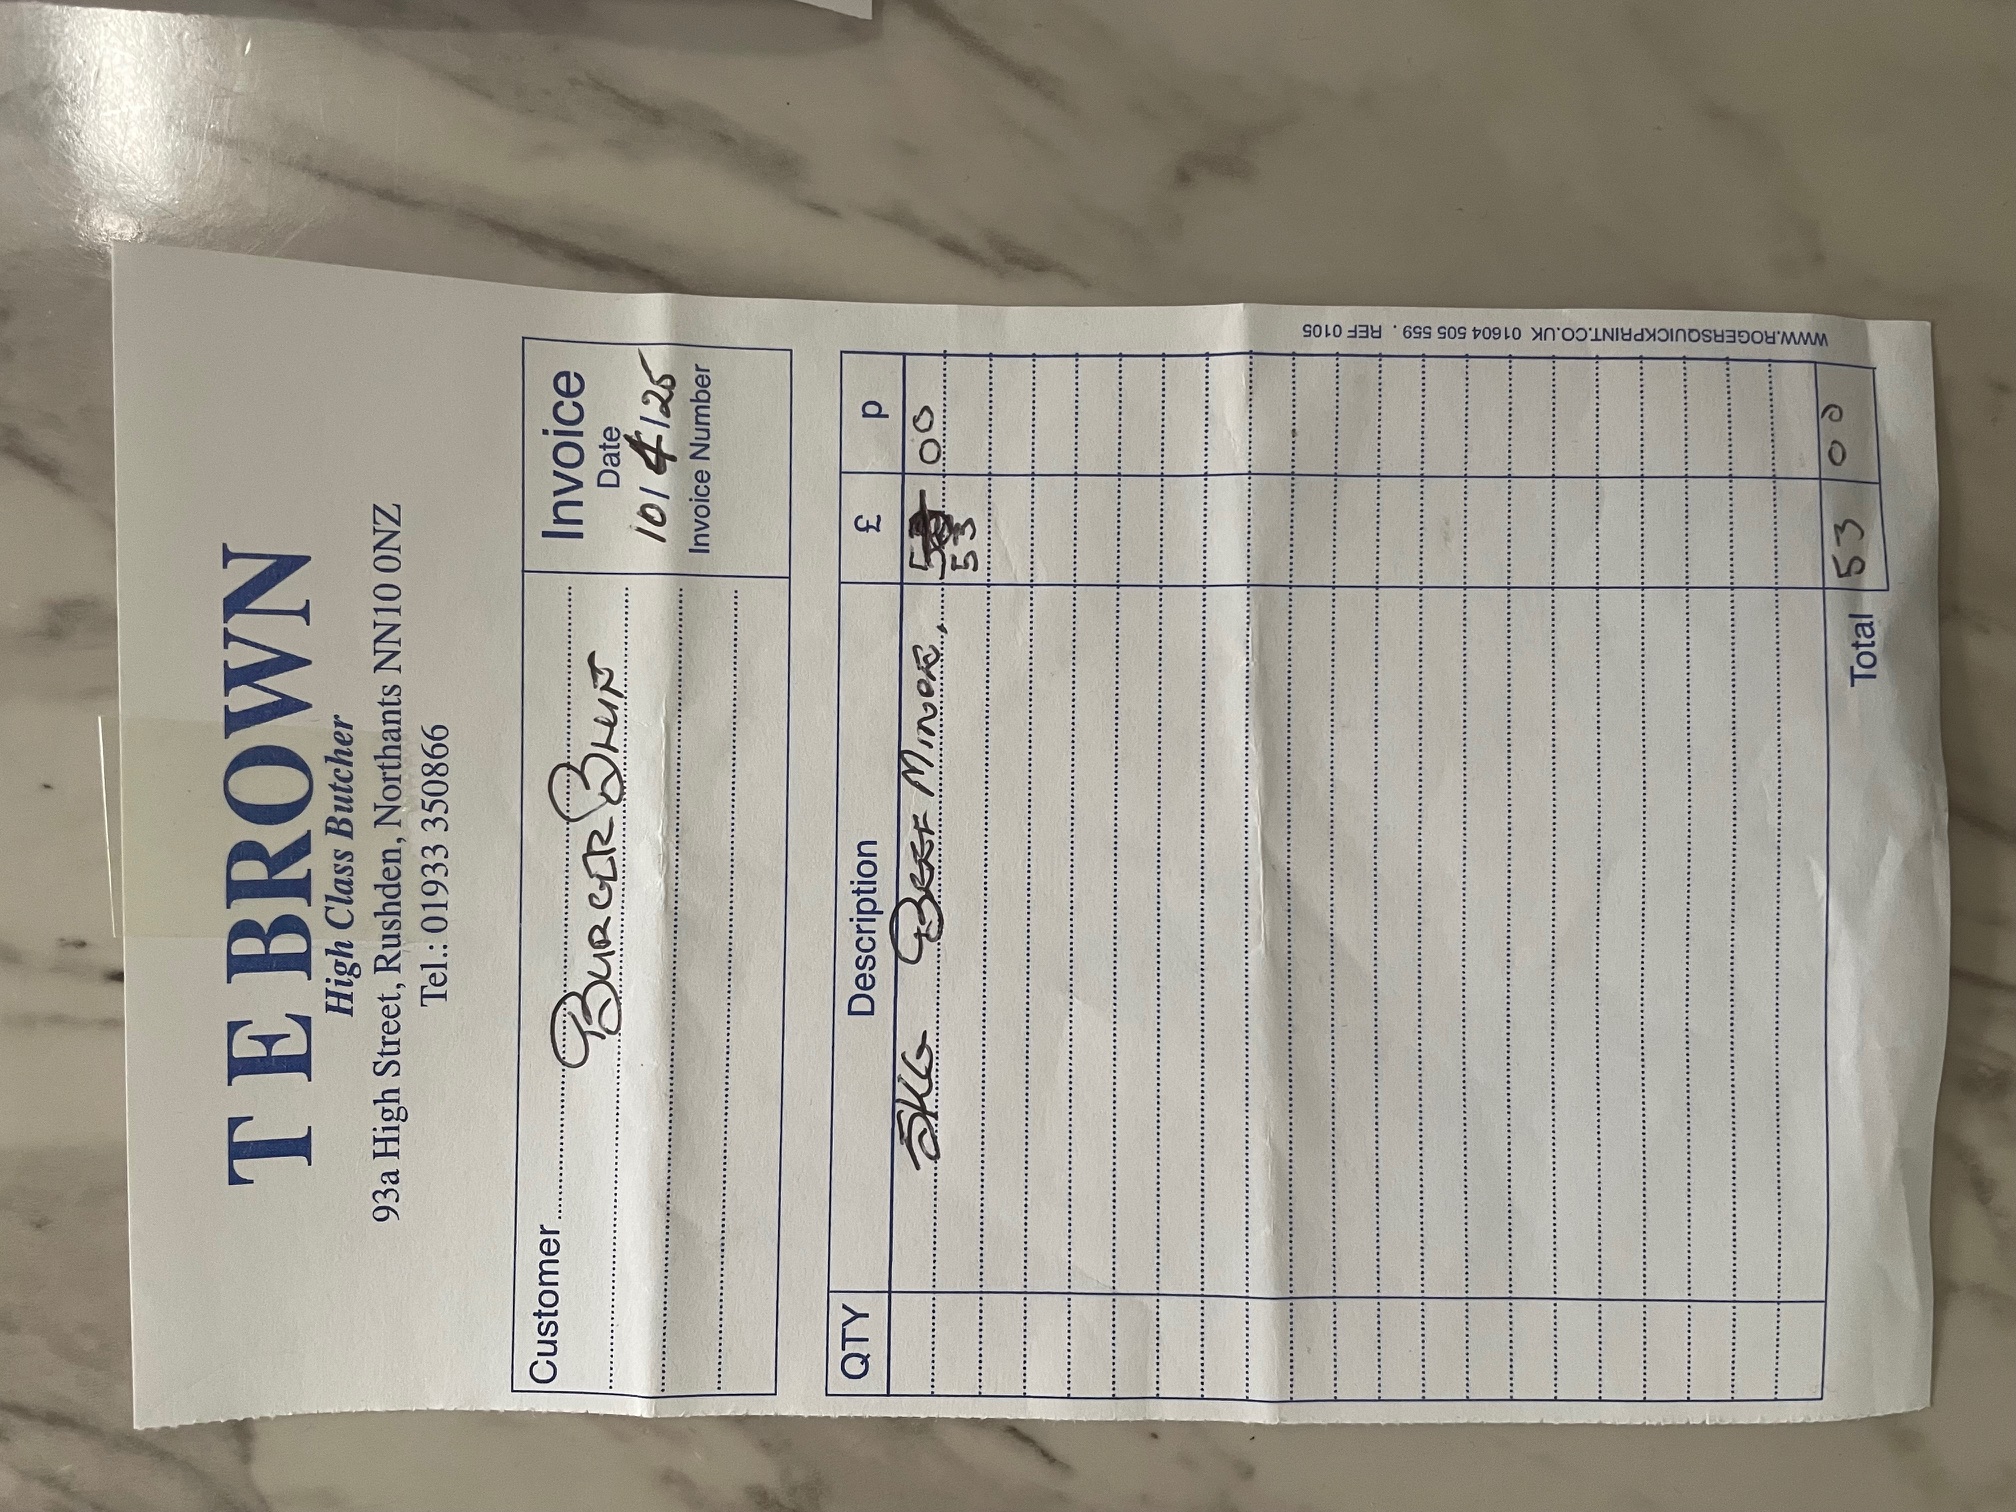 T E BROWN
High Class Butcher
93a High Street, Rushden, Northants NN10 0NZ
Tel.: 01933 350866
Customer
BURGER
Invoice
Date
10/4/25
Invoice Number
QTY Description £ p
5KG BEEF MINCE. 00
53
Total 53 00
WWW.ROGERSQUICKPRINT.CO.UK 01604 505 559 . REF 0105